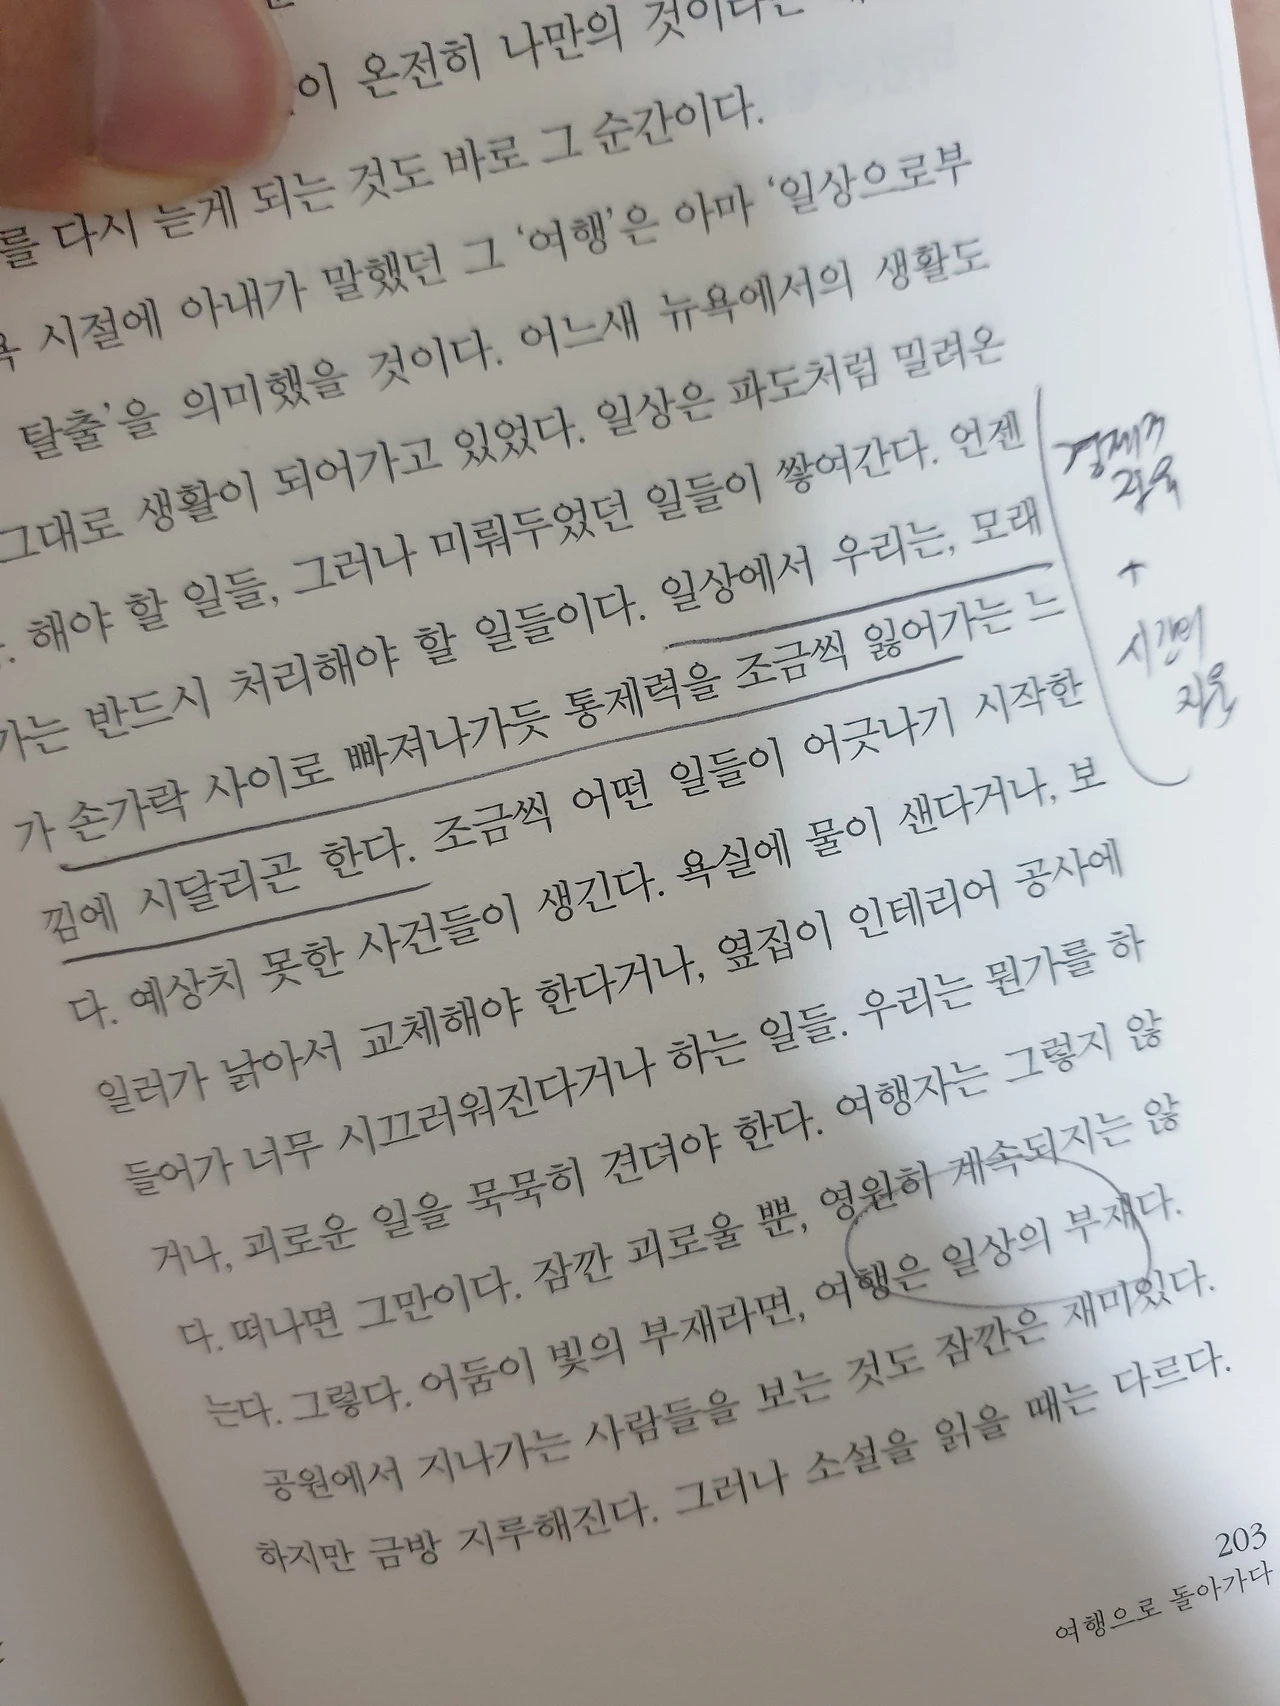 이 온전히 나만의 것이라는
를 다시 듣게 되는 것도 바로 그 순간이다.
시절에 아내가 말했던 그 '여행'은 아마 '일상으로부
탈출'을 의미했을 것이다. 어느새 뉴욕에서의 생활도
그대로 생활이 되어가고 있었다. 일상은 파도처럼 밀려온
해야 할 일들, 그러나 미뤄두었던 일들이 쌓여간다. 언젠
가는 반드시 처리해야 할 일들이다. 일상에서 우리는, 모래
가 손가락 사이로 빠져나가듯 통제력을 조금씩 잃어가는 느
낌에 시달리곤 한다. 조금씩 어떤 일들이 어긋나기 시작한
다. 예상치 못한 사건들이 생긴다. 욕실에 물이 샌다거나, 보
일러가 낡아서 교체해야 한다거나, 옆집이 인테리어 공사에
들어가 너무 시끄러워진다거나 하는 일들. 우리는 뭔가를 하
거나, 괴로운 일을 묵묵히 견뎌야 한다. 여행자는 그렇지 않
다. 떠나면 그만이다. 잠깐 괴로울 뿐, 영원히 계속되지는 않
는다. 그렇다. 어둠이 빛의 부재라면, 여행은 일상의 부재다.
공원에서 지나가는 사람들을 보는 것도 잠깐은 재미있다.
하지만 금방 지루해진다. 그러나 소설을 읽을 때는 다르다.
203
여행으로 돌아가다
+